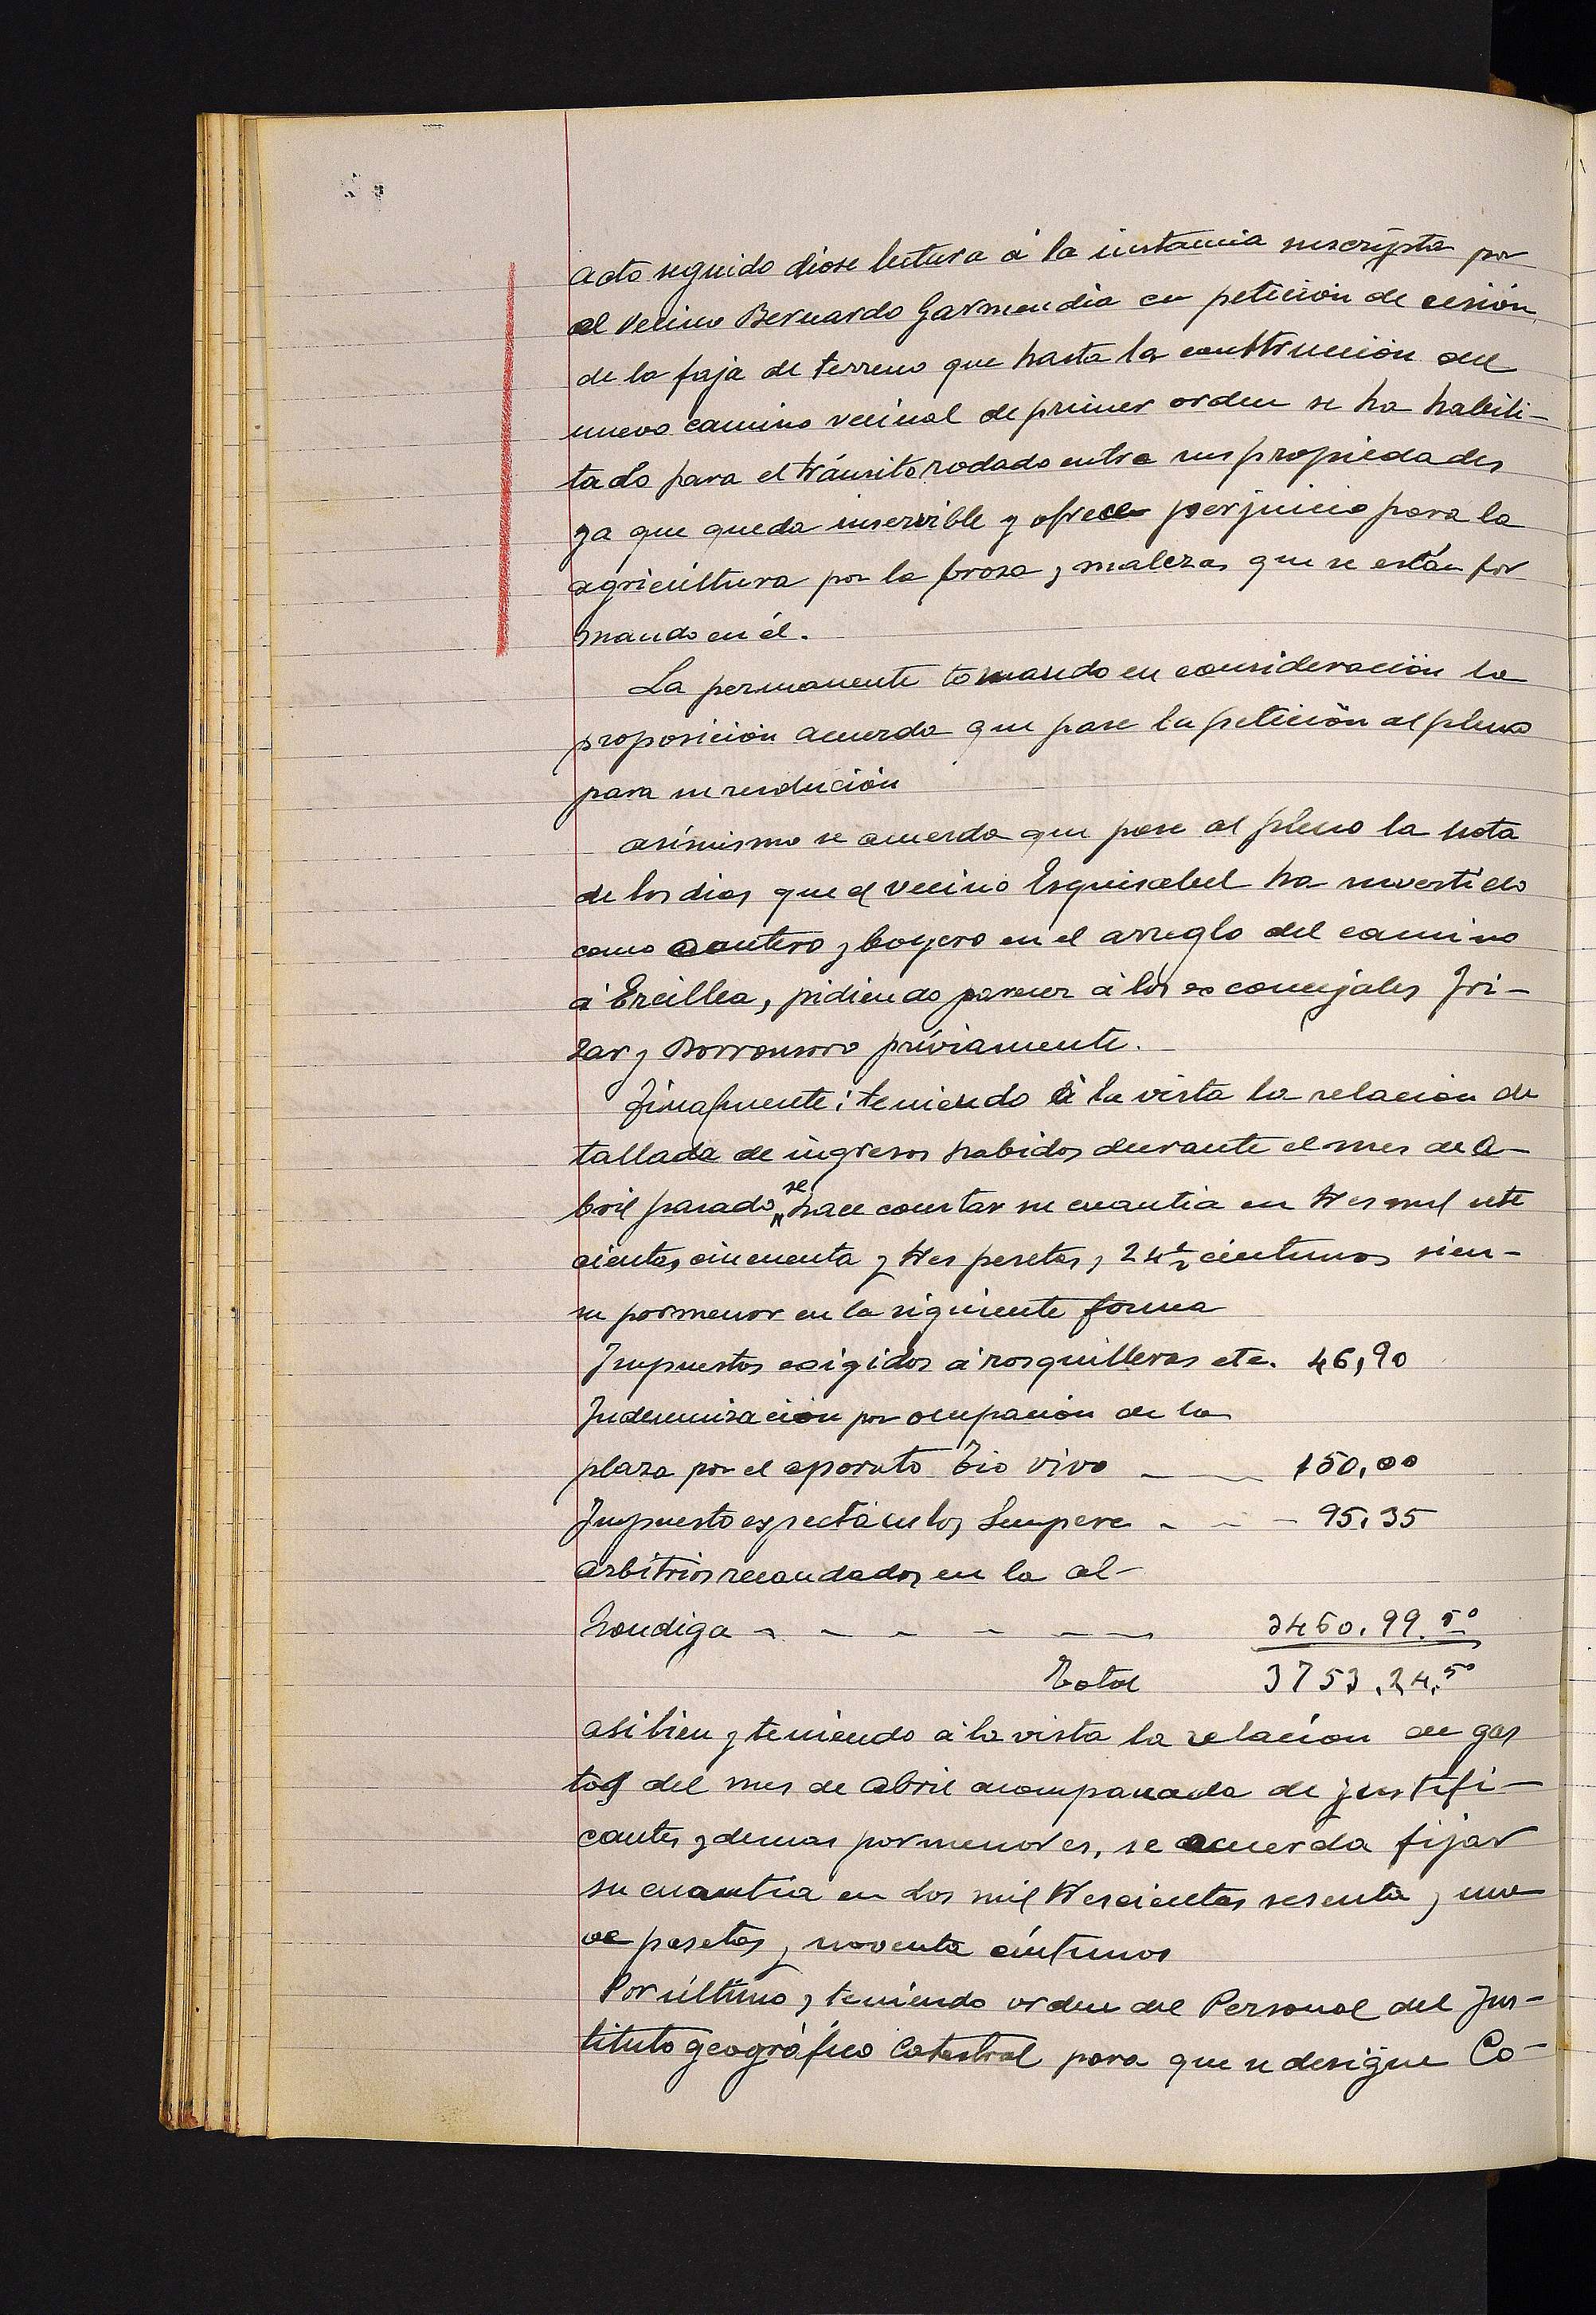 acto seguido diose lectura á la instancia suscripta por
el vecino Bernardo Garmendia en petición de cesión
de la faja de terreno que hasta la construcción del
nuevo camino vecinal de primer orden se ha habili-
tado para el tránsito rodado entre sus propiedades
ya que queda inservible y ofrece perjuicio para la
agricultura por la broza y malezas que se están for
mando en él.
La permanente tomando en consideración la
proposición acuerda que pase la petición al pleno
para su resolución
asímismo se acuerda que pase al pleno la nota
de los dias que el vecino Esquisabel ha invertido
como cantero y boyero en el arreglo del camino
á Ercillea, pidiendo parecer á los exconcejales Iri-
zar y Borronsoro préviamente.
Finalmente: teniendo á la vista la relacion de
tallada de ingresos habidos durante el mes de A-
bril pasado, se hace constar su cuantia en tres mil sete
cientas cincuenta y tres pesetas y 24 ½ centimos sien-
su pormenor en la siguiente forma
Impuestos exigidos á rosquilleras etc. 46,90
Indemnización por ocupación de la
plaza por el aparato Tio vivo 150,00
Impuesto espectáculos Sempere 95,35
arbitrios recaudados en la al-
hondiga 3460.99.50
Total 3753,24,50
asi bien y teniendo á la vista la relacion de gas
tos del mes de Abril acompanada de justifi-
cantes y demas pormenores, se acuerda fijar
su cuantia en dos mil trescientas sesenta y nue
ve pesetas y noventa céntimos
Por último, teniendo orden del Personal del Ins-
tituto geográfico Catastral para que se designe Co-